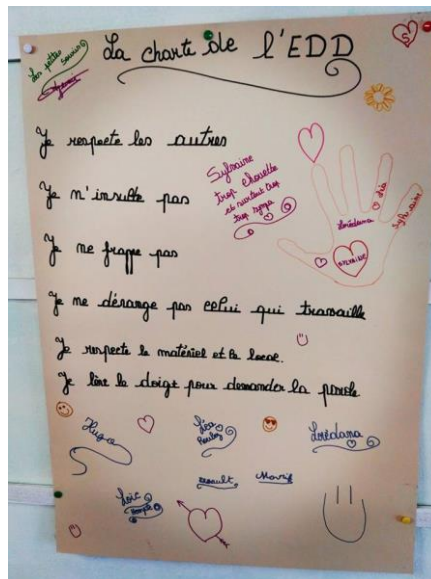 Les petites souris
La charte de l'EDD
S
Je respecte les autres
Sylvaine
trop chouette
et surtout trop
trop sympa
Je n'insulte pas
Léa
Lorédana
Sylvaine
SYLVAINE
Je ne frappe pas
Je ne dérange pas celui qui travaille
Je respecte le matériel et le local.
Je lève le doigt pour demander la parole
Hugo
Léa
Lorédana
Loïc